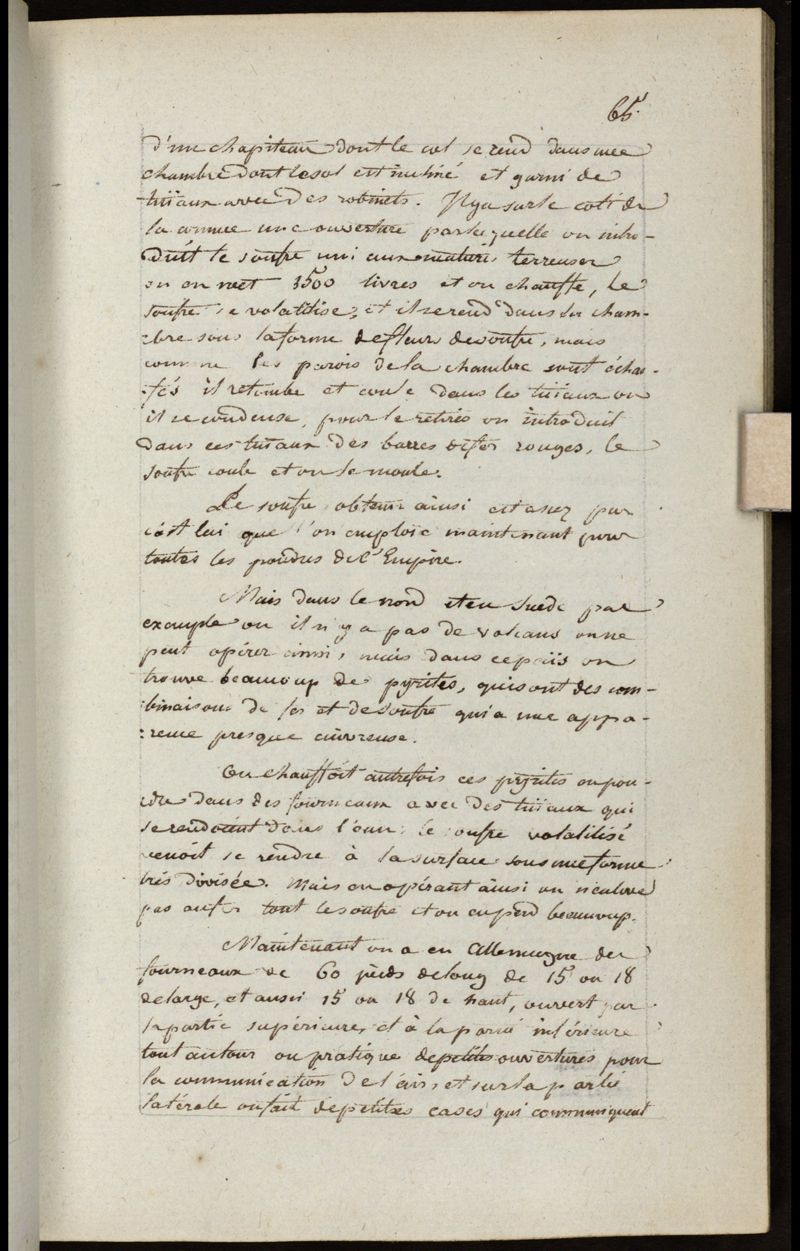 65.
d'un chapiteau dont le col se rend dans une
chambre dont le sol est incliné et garni de
tuiaux avec des robinets. Il y a sur le coté de
la cornue une ouverture par laquelle on intro-
duit le soufre uni aux matieres terreuses
on en met 1500 livres et on chauffe, le
soufre se volatilise, et il se rend dans la cham-
bre sous la forme de fleurs de soufre, mais
comme les parois de la chambre sont échau-
fés il retombe et coule dans les tuiaux ou
il se condense, pour le retirer on introduit
dans ces tuiaux des barres de fer rouges, le
soufre coule et on le moule.
Le soufre obtenu ainsi est assez pur
c'est lui que l'on emploie maintenant pour
toutes les poudres de l'Empire.
Mais dans le nord et en Suede par
exemple ou il n'y a pas de volcans on ne
peut opérer ainsi, mais dans ce païs on
trouve beaucoup de pyrites, qui sont des com-
binaisons de fer et de soufre qui a une appa-
rence presque cuivreuse.
On chauffoit autrefois ces pyrites en pou-
dre dans des fourneaux avec des tuiaux qui
se rendoient dans l'eau: le soufre volatilisé
venoit se rendre à la surface sous une forme
très divisée. Mais en opérant ainsi on n'enleve
pas au fer tout le soufre et on en perd beaucoup.
Maintenant on a en Allemagne des
fourneaux de 60 pieds de long de 15 ou 18
de large, et aussi 15 ou 18 de haut, ouvert par
la partie supérieure, et à la paroi inférieure
tout autour on pratique de petites ouvertures pour
la communication de l'air, et sur la partie
latérale on fait de petites cases qui communiquent